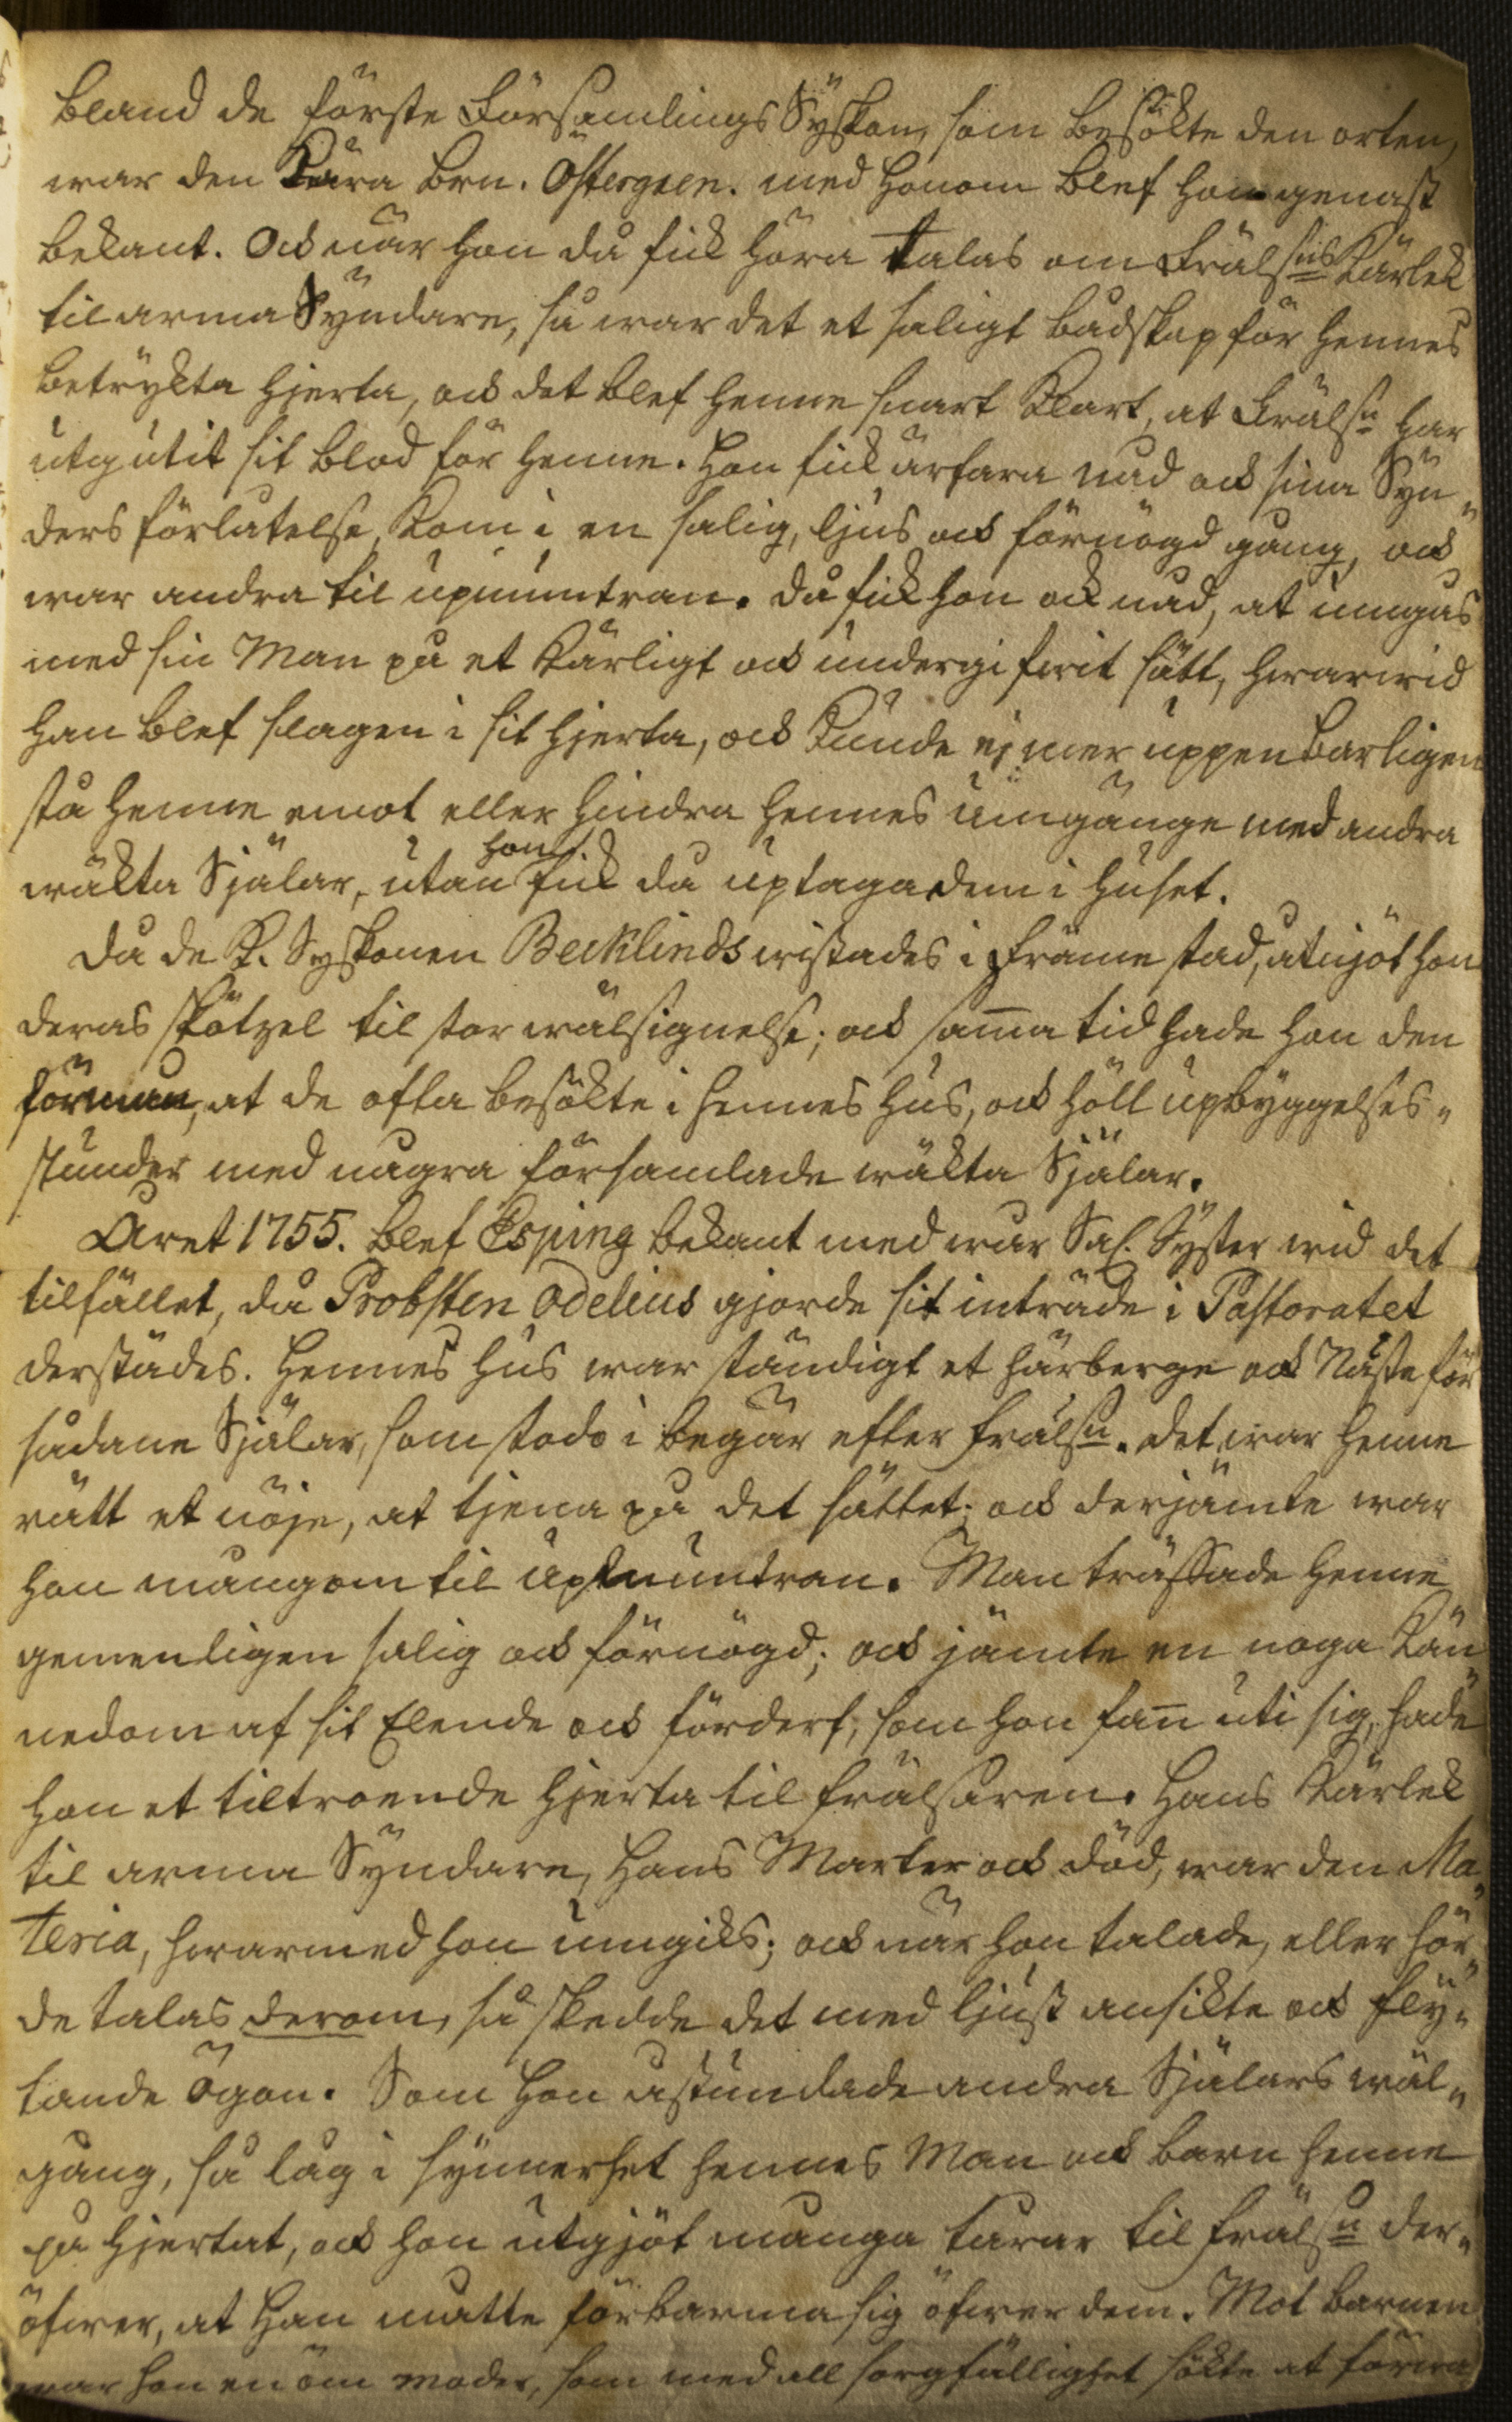 bland de förste Församlings Syskon, som besökte den orten,
war den Kära brn. Östergren. med honom blef hon genast
bekant. Ock när hon då fick höra talas om Frälsns Kärlek
til arma Syndare, så war det et saligt budskap för hennes
betrykta hjerta, ock det blef henne snart Klart, at Frälsn har
utgutit sit blod för henne. Hon fick ärfara nåd ock sina Syn„
ders förlåtelse, Kom i en salig, ljus ock förnögd gång, ock
war andra til upmuntran. Då fick hon ock nåd, at umgås
med sin Man på et Kärligt ock undergifwit sätt, hwarwid
han blef slagen i sit hjerta, ock Kunde ej mer uppenbarligen
stå henne emot eller hindra hennes umgänge med andra
wäkta Själar, utan hon fick då uptaga dem i huset.
Då de K. Syskonen Becklinds wistades i Främestad, utnjöt hon
deras skötzel til stor wälsignelse; ock sam̄a tid hade hon den
förmån, at de ofta besökte i hennes hus, ock höll upbyggelses„
stunder med några församlade wäkta Själar.
Året 1755. blef Esping bekant med wår Sal. Syster wid det
tilfället, då Probsten Odelius gjorde sit inträde i Pastoratet
derstädes. Hennes hus war ständigt et härberge ock Näste för
sådane Själar, som stodo i begär efter Frälsn. det war henne
rätt et nöje, at tjena på det sättet; ock derjämte war
hon mångom til upmuntran. Man träffade henne
gemenligen salig ock förnögd; ock jämte en noga Kän„
nedom af sit Elende ock förderf, som hon fan̄ uti sig, hade
hon et tiltroende hjerta til Frälsaren. Hans Kärlek
til arma Syndare, Hans Marter ock död, war den Ma„
teria, hwarmed hon umgicks; ock när hon talade, eller hör„
de talas derom, så skedde det med ljust ansikte ock fly„
tande ögon. Som hon åstundade andra Själars wäl„
gång, så låg i synnerhet hennes Man ock barn henne
på hjertat, ock hon utgjöt många tårar til Frälsn der„
öfwer, at Han måtte förbarma sig öfwer dem. Mot barnen
war hon en öm moder, som med all sorgfällighet sökte at förwa